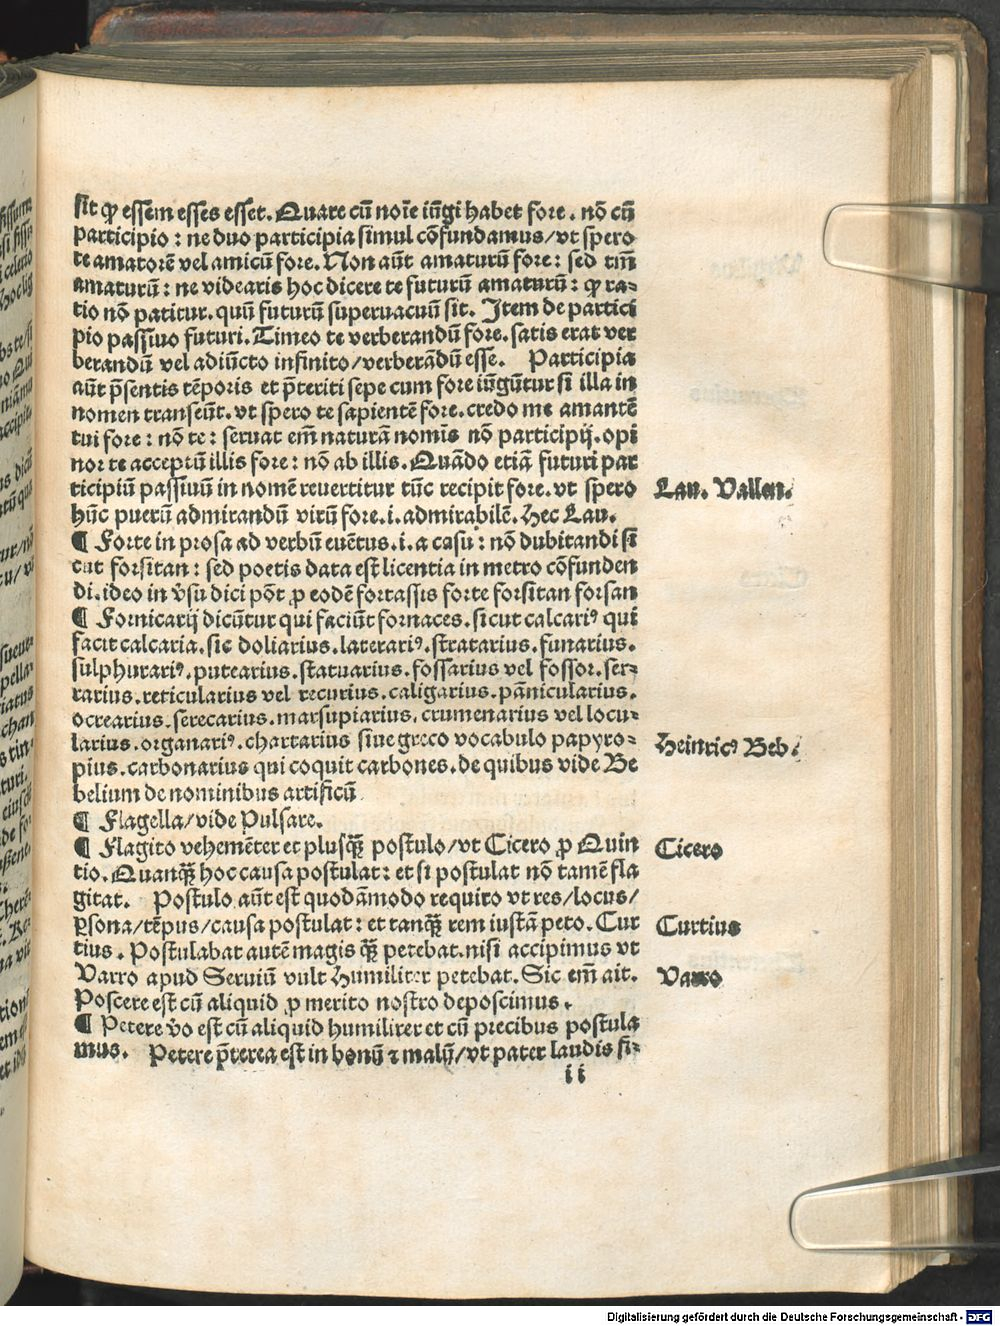 sit ꝙ essem esses esset. Quare cū noīe iūgi habet fore. nō cū
participio: ne duo participia simul cōfundamus/vt spero
te amatorē vel amicū fore. Non aūt amaturū fore: sed tm̄
amaturū: ne videaris hoc dicere te futurū amaturū: ꝙ ra⸗
tio nō patitur. quū futurū superuacuū sit. Item de partici
pio passiuo futuri. Timeo te verberandū fore. satis erat ver
berandū vel adiūcto infinito/verberādū esse. Participia
aūt p̄sentis tēporis et p̄teriti sepe cum fore iūgūtur si illa in
nomen transeūt. vt spero te sapientē fore. credo me amantē
tui fore: nō te: seruat em̄ naturā nomīs nō participij. opi
nor te acceptū illis fore: nō ab illis. Quādo etiā futuri par
ticipiū passiuū in nomē reuertitur tūc recipit fore. vt spero
hūc puerū admirandū virū fore. i. admirabilē. Hec Lau.
Lau. Vallen.
¶ Forte in prosa ad verbū euētus. i. a casu: nō dubitandi si
cut forsitan: sed poetis data est licentia in metro cōfunden
di. ideo in vsu dici pōt ꝓ eodē fortassis forte forsitan forsan
¶ Fornicarij dicūtur qui faciūt fornaces. sicut calcariꝰ qui
facit calcaria. sic doliarius. laterariꝰ. stratarius. funarius.
sulphurariꝰ. putearius. statuarius. fossarius vel fossor. ser⸗
rarius. reticularius vel recurius. caligarius. pānicularius.
ocrearius. serecarius. marsupiarius. crumenarius vel locu⸗
larius. organariꝰ. chartarius siue greco vocabulo papyro⸗
pius. carbonarius qui coquit carbones. de quibus vide Be
belium de nominibus artificū
Heinricꝰ Beb.
¶ Flagella/vide Pulsare.
¶ Flagito vehemēter et plusq̄ʒ postulo/vt Cicero ꝓ Quin
tio. Quanq̄ʒ hoc causa postulat: et si postulat nō tamē fla
gitat. Postulo aūt est quodāmodo requiro vt res/locus/
ꝑsona/tēpus/causa postulat: et tanq̄ʒ rem iustā peto. Cur
tius. Postulabat autē magis q̄ʒ petebat. nisi accipimus vt
Varro apud Seruiū vult Humiliter petebat. Sic em̄ ait.
Poscere est cū aliquid ꝓ merito nostro deposcimus.
Cicero
Curtius
Varro
¶ Petere v̄o est cū aliquid humiliter et cū precibus postula
mus. Petere p̄terea est in bonū ⁊ malū/vt pater laudis si⸗
ii
Digitalisierung gefördert durch die Deutsche Forschungsgemeinschaft - DFG